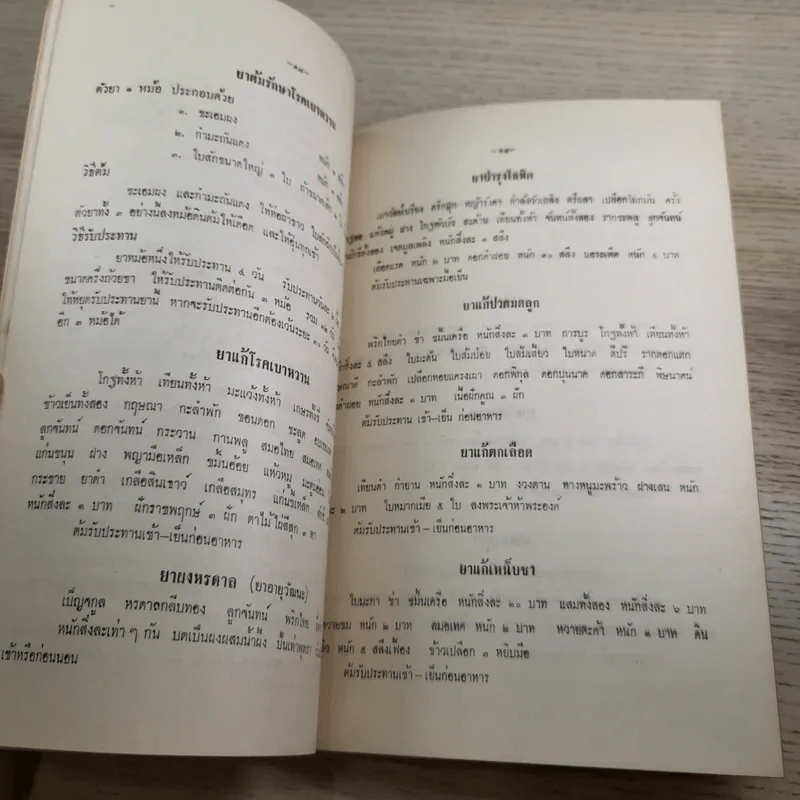 —๑๘—
ยาต้มรักษาโรคเบาหวาน
ตัวยา ๑ หม้อ ประกอบด้วย
๑. ชะเอมผง
๒. กำมะถันแดง
๓. ใบสักขนาดใหญ่ ๓ ใบ
วิธีต้ม
ชะเอมผง และกำมะถันแดง ให้ห่อผ้าขาว
ตัวยาทั้ง ๓ อย่างนี้ลงหม้อดินต้มให้เดือด และให้อุ่นทุกเช้า
วิธีรับประทาน
ยาหม้อหนึ่งให้รับประทาน ๔ วัน
ขนาดครึ่งถ้วยชา ให้รับประทานติดต่อกัน ๓ หม้อ รวม
ให้หยุดรับประทานยานี้ หากจะรับประทานอีกต้องเว้นระยะ ๑๐ วัน
อีก ๓ หม้อได้
ยาแก้โรคเบาหวาน
โกฐทั้งห้า เทียนทั้งห้า มะแว้งทั้งห้า เกษรทั้งห้า
ข้าวเย็นทั้งสอง กฤษณา กะลำพัก ขอนดอก ชะลูด
ลูกจันทน์ ดอกจันทน์ กระวาน กานพลู สมอไทย สมอเทศ
แก่นขนุน ฝาง พญามือเหล็ก ขมิ้นอ้อย แห้วหมู
กระชาย ยาดำ เกลือสินเธาว์ เกลือสมุทร แก่นขี้เหล็ก
หนักสิ่งละ ๑ บาท ฝักราชพฤกษ์ ๓ ฝัก ตาไม้ไผ่สีสุก ๑ ตา
ต้มรับประทานเช้า–เย็นก่อนอาหาร
ยาผงหรดาล (ยาอายุวัฒนะ)
เบ็ญจกูล หรดาลกลีบทอง ลูกจันทน์ พริกไทย
หนักสิ่งละเท่าๆ กัน บดเป็นผงผสมน้ำผึ้ง ปั้นเท่าพุทรา
เช้าหรือก่อนนอน
—๑๙—
ยาบำรุงโลหิต
กำลังวัวเถลิง เปลือกโมกมัน ครั่ง
ฝาง โกฐหัวบัว สะค้าน เทียนทั้งห้า จันทน์ทั้งสอง รากชพลู ลูกจันทน์
เจตมูลเพลิง หนักสิ่งละ ๑ สลึง
เลือดแรด หนัก ๒ บาท ดอกคำฝอย หนัก ๑๐ สลึง บอระเพ็ด หนัก ๕ บาท
ต้มรับประทานเฉพาะมื้อเย็น
ยาแก้ปวดมดลูก
พริกไทยดำ ข่า ขมิ้นเครือ หนักสิ่งละ ๑ บาท การบูร โกฐทั้งห้า เทียนทั้งห้า
หนักสิ่งละ ๕ สลึง ใบมะดัน ใบส้มป่อย ใบส้มเสี้ยว ใบหนาด ดีปรี รากตองแตก
กะลำพัก เปลือกหอยแครงเผา ดอกพิกุล ดอกบุนนาค ดอกสาระภี พิษนาศน์
หนักสิ่งละ ๑ บาท เนื้อฝักคูณ ๓ ฝัก
ต้มรับประทาน เช้า–เย็น ก่อนอาหาร
ยาแก้ตกเลือด
เทียนดำ กำยาน หนักสิ่งละ ๑ บาท งวงตาน หางหนูมะพร้าว ฝางเสน หนัก
๒ บาท ใบหมากเมีย ๕ ใบ ลงพระเจ้าห้าพระองค์
ต้มรับประทานเช้า–เย็นก่อนอาหาร
ยาแก้เหน็บชา
ใบมะกา ข่า ขมิ้นเครือ หนักสิ่งละ ๑๐ บาท แสมทั้งสอง หนักสิ่งละ ๖ บาท
หวายขม หนัก ๒ บาท สมอเทศ หนัก ๒ บาท หวายตะค้า หนัก ๑ บาท ดิน
หนัก ๕ สลึงเฟื้อง ข้าวเปลือก ๓ หยิบมือ
ต้มรับประทานเช้า–เย็นก่อนอาหาร